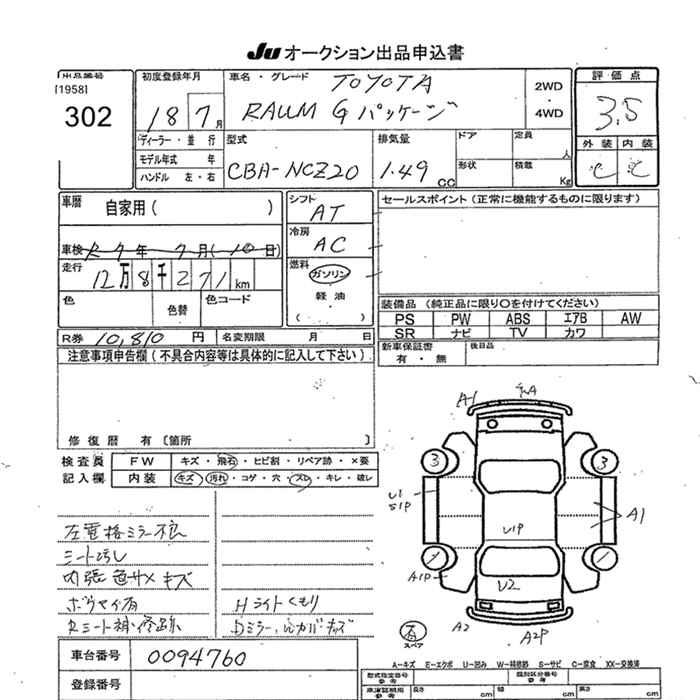 Ju オークション出品申込書
出品番号
[1958]
302
初度登録年月
18 7月
車名・グレード
TOYOTA
RAUM G パッケージ
2WD
・
4WD
評価点
3.5
外装 内装
C C
ディーラー・並行
モデル年式 年
ハンドル 左・右
型式
CBA-NCZ20
排気量
1.49 CC
ドア
形状
定員
人
積載
Kg
車暦
自家用( )
車検 R7年7月(10日)
走行
12万8千271km
色
色替
色コード
シフト
AT
冷房
AC
燃料
ガソリン
軽油
( )
セールスポイント(正常に機能するものに限ります)
装備品(純正品に限り○を付けてください)
PS PW ABS エアB AW
SR ナビ TV カワ
新車保証書
有・無
後日品
R券 10,810 円
名変期限 月 日
注意事項申告欄(不具合内容等は具体的に記入して下さい)
修復暦 有〔箇所 〕
検査員
記入欄
FW キズ・飛石・ヒビ割・リペア跡・×要
内装 キズ・汚れ・コゲ・穴・スレ・キレ・破レ
左電格ミラー不良
シート汚し
内張色サメキズ
Hライトくもり
A1
A
3
3
U1
S1P
U1P
A1
A1P
U2
A2
A2P
スペア
A=キズ E=エクボ U=凹み W=補修跡 S=サビ C=腐食 XX=交換済
車台番号 0094760
登録番号
型式指定番号
参考
類別区分番号
参考
車庫証明用
参考
長さ cm
幅 cm
高さ cm